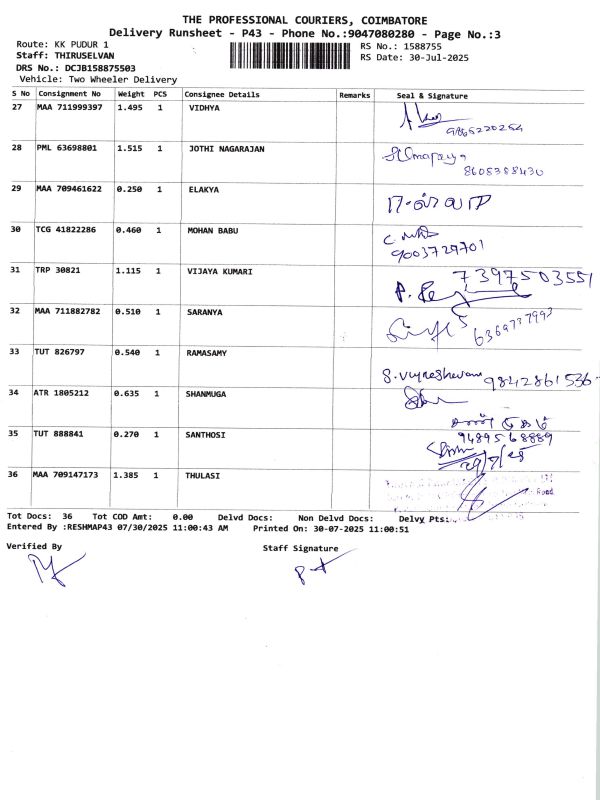 THE PROFESSIONAL COURIERS, COIMBATORE
Delivery Runsheet - P43 - Phone No.:9047080280 - Page No.:3
Route: KK PUDUR 1 RS No.: 1588755
Staff: THIRUSELVAN RS Date: 30-Jul-2025
DRS No.: DCJB158875503
Vehicle: Two Wheeler Delivery
S No Consignment No Weight PCS Consignee Details Remarks Seal & Signature
27 MAA 711999397 1.495 1 VIDHYA
9865220254
28 PML 63698801 1.515 1 JOTHI NAGARAJAN
8608388430
29 MAA 709461622 0.250 1 ELAKYA
30 TCG 41822286 0.460 1 MOHAN BABU
9003727701
31 TRP 30821 1.115 1 VIJAYA KUMARI 7397503551
32 MAA 711882782 0.510 1 SARANYA
6369737993
33 TUT 826797 0.540 1 RAMASAMY
9842861536
34 ATR 1805212 0.635 1 SHANMUGA
35 TUT 888841 0.270 1 SANTHOSI 9489568889
29/7/25
36 MAA 709147173 1.385 1 THULASI
Road
Tot Docs: 36 Tot COD Amt: 0.00 Delvd Docs: Non Delvd Docs: Delvy Pts:
Entered By :RESHMAP43 07/30/2025 11:00:43 AM Printed On: 30-07-2025 11:00:51
Verified By Staff Signature